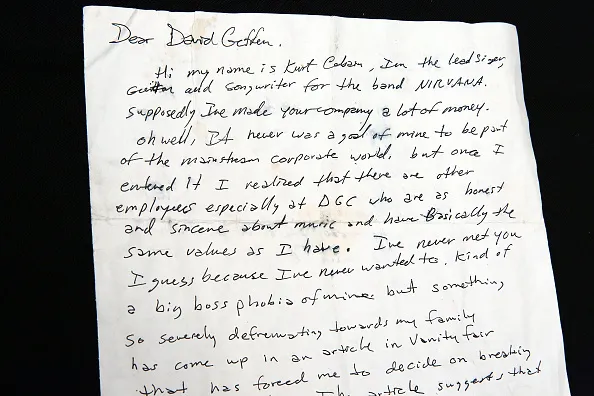 Dear David Geffen.
Hi my name is Kurt Cobain, Im the lead singer,
and songwriter for the band NIRVANA.
supposedly Ive made your company a lot of money.
oh well, It never was a goal of mine to be part
of the mainstream corporate world, but once I
entered it I realized that there are other
employees especially at DGC who are as honest
and sincere about music and have Basically the
same values as I have. Ive never met you
I guess because Ive never wanted to. kind of
a big boss phobia of mine. but something
so severely defremating towards my family
has come up in an article in Vanity fair
that has forced me to decide on breaking
The article suggests that